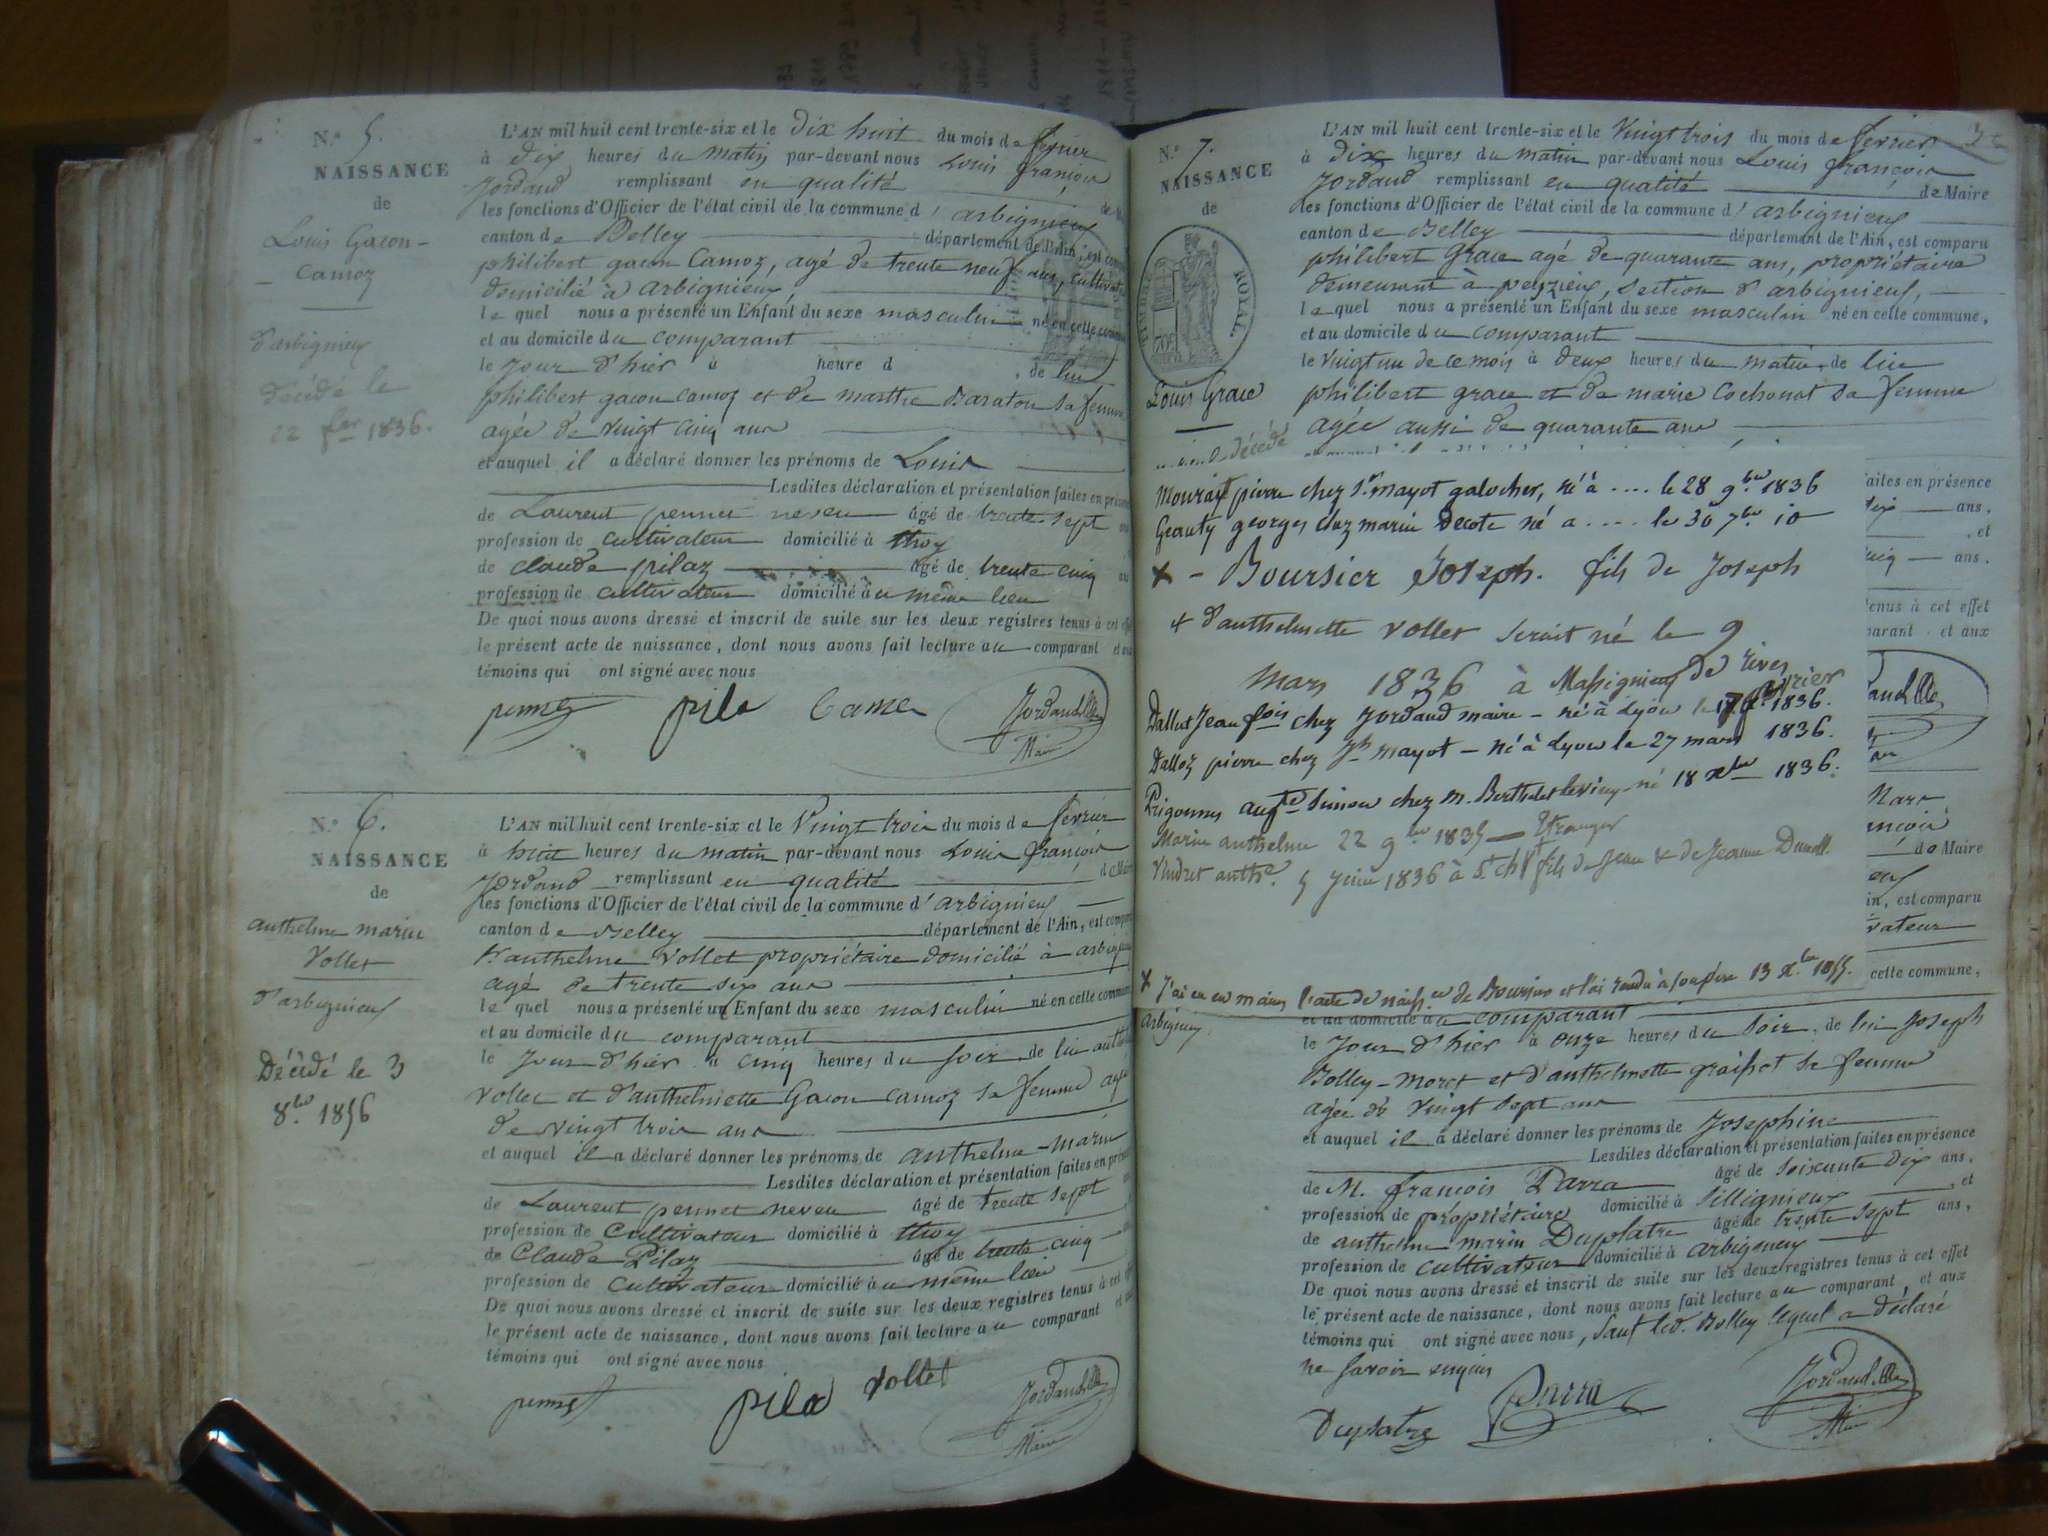 N.° 5.
NAISSANCE
de
Louis Gacon-
Camoz
d'arbignieu
décédé le
22 1836.
L'AN mil huit cent trente-six et le dix huit du mois de février
à dix heures du matin par-devant nous Louis françois
Jordand remplissant en qualité
les fonctions d'Officier de l'état civil de la commune d'arbignieu
canton de Belley département de l'Ain, est comp
philibert gacon Camoz, agé de trente neuf ans, cultivat
domicilié à arbignieu
lequel nous a présenté un Enfant du sexe masculin né en cette commu
et au domicile du comparant
le Jour d'hier à heure d . de lui
philibert gacon camoz et de marthe Baraton sa femme
agée de vingt cinq ans
et auquel il a déclaré donner les prénoms de Louis
Lesdites déclaration et présentation faites en présen
de Laurent pennet neveu âgé de trente-sept
profession de cultivateur domicilié à thoy
de Claude pilaz âgé de trente cinq
profession de cultivateur domicilié au même lieu
De quoi nous avons dressé et inscrit de suite sur les deux registres tenus à cet eff
le présent acte de naissance, dont nous avons fait lecture au comparant et aux
témoins qui ont signé avec nous
pennet pila Camoz Jordand
Maire
N.° 6.
NAISSANCE
de
anthelme marin
Vollet
d'arbignieu
Décédé le 3
8.bre 1856
L'AN mil huit cent trente-six et le Vingt trois du mois de février
à huit heures du matin par-devant nous Louis françois
Jordand remplissant en qualité
les fonctions d'Officier de l'état civil de la commune d'arbignieu
canton de Belley département de l'Ain, est comp
anthelme Vollet propriétaire domicilié à arbig
agé de trente six ans
lequel nous a présenté un Enfant du sexe masculin né en cette commun
et au domicile du comparant
le Jour d'hier à cinq heures du soir de lui anth
vollet et d'anthelmette Gacon camoz sa femme agée
de vingt trois ans
et auquel il a déclaré donner les prénoms de anthelme-marin
Lesdites déclaration et présentation faites en prése
de Laurent pennet neveu âgé de trente sept
profession de Cultivateur domicilié à thoy
de Claude Pilaz âgé de trente cinq
profession de cultivateur domicilié au même lieu
De quoi nous avons dressé et inscrit de suite sur les deux registres tenus à cet eff
le présent acte de naissance, dont nous avons fait lecture au comparant et aux
témoins qui ont signé avec nous
pennet pila Vollet Jordand
Maire
N.° 7.
NAISSANCE
de
TIMBRE ROYAL
Louis Grace
décédé
L'AN mil huit cent trente-six et le Vingt trois du mois de février
à dix heures du matin par-devant nous Louis françois
Jordand remplissant en qualité de Maire
les fonctions d'Officier de l'état civil de la commune d'arbignieu
canton de Belley département de l'Ain, est comparu
philibert Grace agé de quarante ans, propriétaire
demeurant à peyzieu, section d'arbignieu,
lequel nous a présenté un Enfant du sexe masculin né en cette commune,
et au domicile du comparant
le vingt un de ce mois à deux heures du matin de lui
philibert grace et de marie Cochonat sa femme
agée aussi de quarante ans
Mouray pierre chez Sr. mayot galocher, né à .... le 28 9.bre 1836
Geauty georges chez marin Decote né a .... le 30 7.bre id
x - Boursier Joseph. fils de Joseph
& d'anthelmette Vollet serait né le 9
mars 1836 à Massignieu de rives
Dallut Jean fois chez Jordand maire - né à Lyon le 17 février 1836.
Dalloz pierre chez Jh mayot - né à Lyon le 27 mars 1836.
chez m. né 18 xbre 1836.
Marin anthelme 22 9.bre 1835 - Etranger
Vindret anthe. 5 Juin 1836 à St. fils de Jean & de Jeanne
x J'ai eu en mains l'acte de naissce de Boursier et l'ai rendu à son père 13 Xbre 1855.
aites en présence
dix ans,
et
cinq ans.
tenus à cet effet
parant et aux
Mars
ançois
de Maire
in, est comparu
vateur
cette commune,
arbignieu
et au domicile du comparant
le Jour d'hier à onze heures du soir, de lui Joseph
Bolley-moret et d'anthelmette sa femme
agée de vingt sept ans
et auquel il a déclaré donner les prénoms de Josephine
Lesdites déclaration et présentation faites en présence
de M. françois Parra âgé de soixante dix ans,
profession de propriétaire domicilié à Sillignieux, et
de anthelme marin Duplatre âgé de trente sept ans,
profession de cultivateur domicilié à arbignieu
De quoi nous avons dressé et inscrit de suite sur les deux registres tenus à cet effet
le présent acte de naissance, dont nous avons fait lecture au comparant, et aux
témoins qui ont signé avec nous, sauf led. Bolley lequel a déclaré
ne savoir signer
Duplatre Parra Jordand
Maire